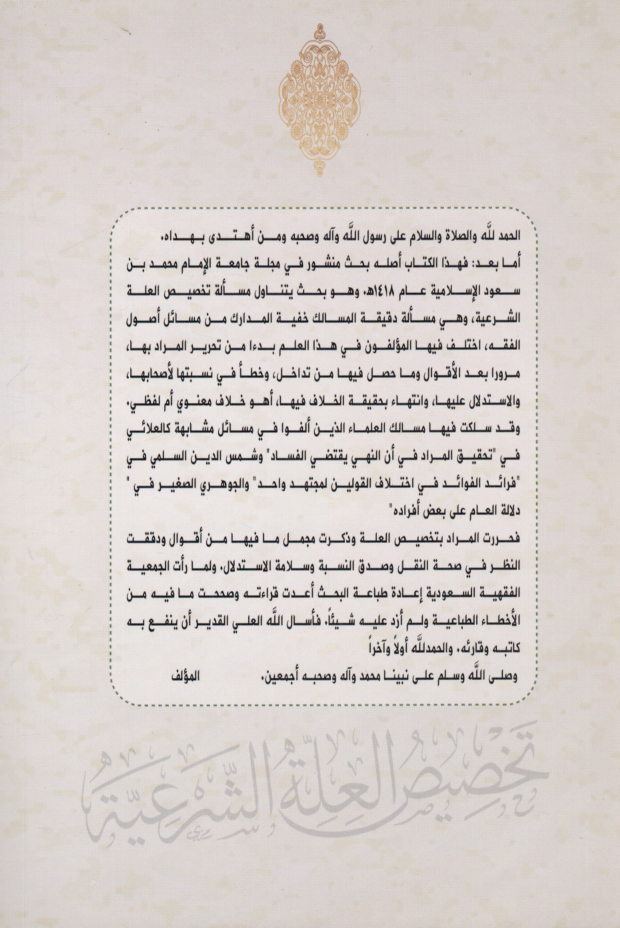 الحمد للَّه والصلاة والسلام على رسول اللَّه وآله وصحبه ومن أهتدى بهداه.
أما بعد: فهذا الكتاب أصله بحث منشور في مجلة جامعة الإمام محمد بن
سعود الإسلامية عام ١٤١٨هـ. وهو بحث يتناول مسألة تخصيص العلة
الشرعية، وهي مسألة دقيقة المسالك خفية المدارك من مسائل أصول
الفقه، اختلف فيها المؤلفون في هذا العلم بدءا من تحرير المراد بها،
مرورا بعد الأقوال وما حصل فيها من تداخل، وخطأ في نسبتها لأصحابها،
والاستدلال عليها، وانتهاء بحقيقة الخلاف فيها، أهو خلاف معنوي أم لفظي.
وقد سلكت فيها مسالك العلماء الذين ألفوا في مسائل مشابهة كالعلائي
في "تحقيق المراد في أن النهي يقتضي الفساد" وشمس الدين السلمي في
"فرائد الفوائد في اختلاف القولين لمجتهد واحد" والجوهري الصغير في "
دلالة العام على بعض أفراده"
فحررت المراد بتخصيص العلة وذكرت مجمل ما فيها من أقوال ودققت
النظر في صحة النقل وصدق النسبة وسلامة الاستدلال. ولما رأت الجمعية
الفقهية السعودية إعادة طباعة البحث أعدت قراءته وصححت ما فيه من
الأخطاء الطباعية ولم أزد عليه شيئاً. فأسال اللَّه العلي القدير أن ينفع به
كاتبه وقارئه. والحمدللَّه أولاً وآخراً
وصلى اللَّه وسلم على نبينا محمد وآله وصحبه أجمعين. المؤلف
تَخْصِيصُ العِلَّةِ الشَّرْعِيَّةِ